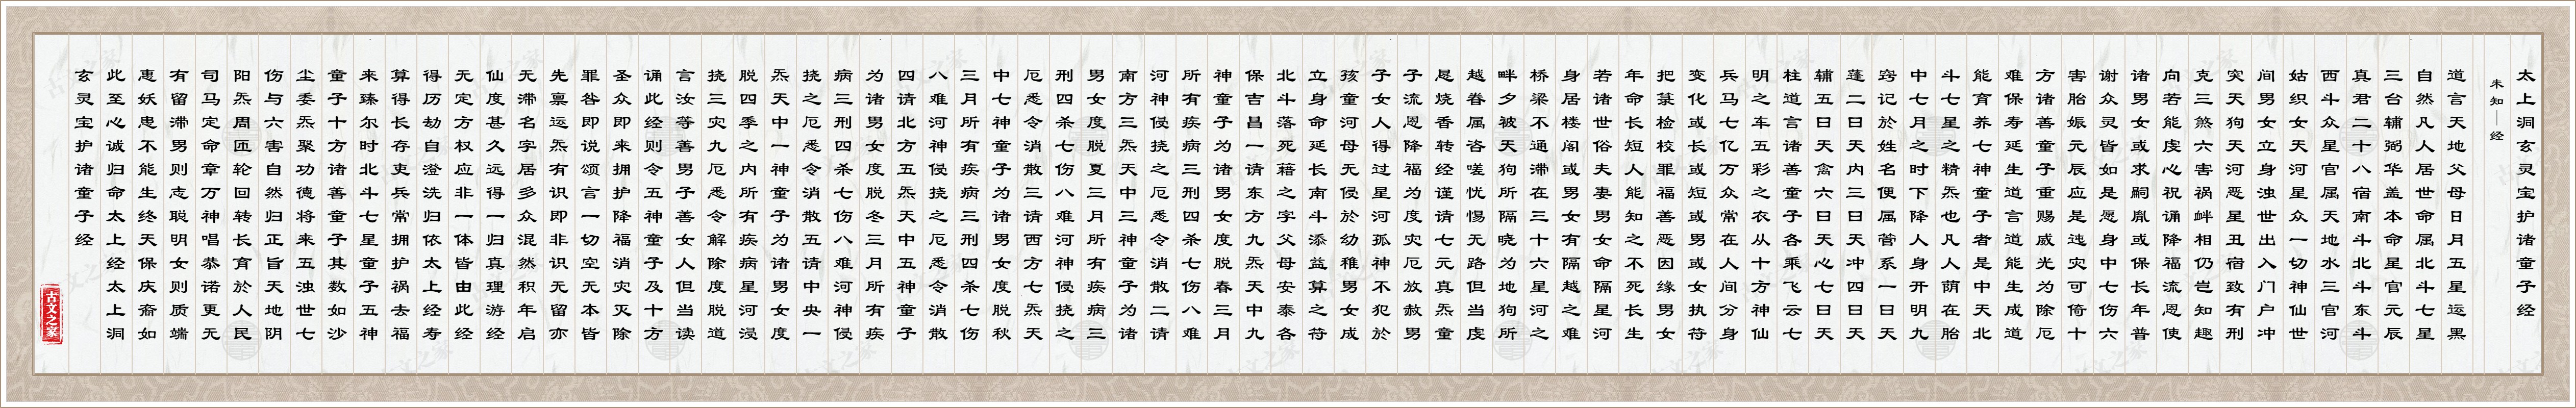 太上洞玄灵宝护诸童子经
未知——经
道言天地父母日月五星运黑
自然凡人居世命属北斗七星
三台辅弼华盖本命星官元辰
真君二十八宿南斗北斗东斗
西斗众星官属天地水三官河
姑织女天河星众一切神仙世
间男女立身浊世出入门户冲
突天狗天河恶星丑宿致有刑
克三煞六害祸衅相仍岂知趣
向若能虔心祝诵降福流恩使
诸男女或求嗣胤或保长年普
谢众灵皆如是愿身中七伤六
害胎娠元辰应是迍灾可倚十
方诸善童子重赐威光为除厄
难保寿延生道言道能生成道
能育养七神童子者是中天北
斗七星之精炁也凡人荫在胎
中七月之时下降人身开明九
窍记於姓名便属管系一日天
蓬二日天内三日天冲四日天
辅五日天禽六日天心七日天
柱道言诸善童子各乘飞云七
明之车五彩之衣从十方神仙
兵马七亿万众常在人间分身
变化或长或短或男或女执符
把箓检校罪福善恶因缘男女
年命长短人能知之不死长生
若诸世俗夫妻男女命隔星河
身居楼阁或男女有隔越之难
桥梁不通滞在三十六星河之
畔夕被天狗所隔晓为地狗所
越眷属咨嗟忧惕无路但当虔
恳烧香转经谨请七元真炁童
子流恩降福为度灾厄放赦男
子女人得过星河孤神不犯於
孩童河母无侵於幼稚男女成
立身命延长南斗添益算之符
北斗落死籍之字父母安泰各
保吉昌一请东方九炁天中九
神童子为诸男女度脱春三月
所有疾病三刑四杀七伤八难
河神侵挠之厄悉令消散二请
南方三炁天中三神童子为诸
男女度脱夏三月所有疾病三
刑四杀七伤八难河神侵挠之
厄悉令消散三请西方七炁天
中七神童子为诸男女度脱秋
三月所有疾病三刑四杀七伤
八难河神侵挠之厄悉令消散
四请北方五炁天中五神童子
为诸男女度脱冬三月所有疾
病三刑四杀七伤八难河神侵
挠之厄悉令消散五请中央一
炁天中一神童子为诸男女度
脱四季之内所有疾病星河浸
挠三灾九厄悉令解除度脱道
言汝等善男子善女人但当读
诵此经则令五神童子及十方
圣众即来拥护降福消灾灭除
罪咎即说颂言一切空无本皆
先禀运炁有识即非识无留亦
无滞名字居多众混然积年启
仙度甚久远得一归真理游经
无定方权应非一体皆由此经
得历劫自澄洗归依太上经寿
算得长存吏兵常拥护祸去福
来臻尔时北斗七星童子五神
童子十方诸善童子其数如沙
尘委炁聚功德将来五浊世七
伤与六害自然归正旨天地阴
阳炁周匝轮回转长育於人民
司马定命章万神唱恭诺更无
有留滞男则志聪明女则质端
恚妖患不能生终天保庆裔如
此至心诚归命太上经太上洞
玄灵宝护诸童子经
古文之家